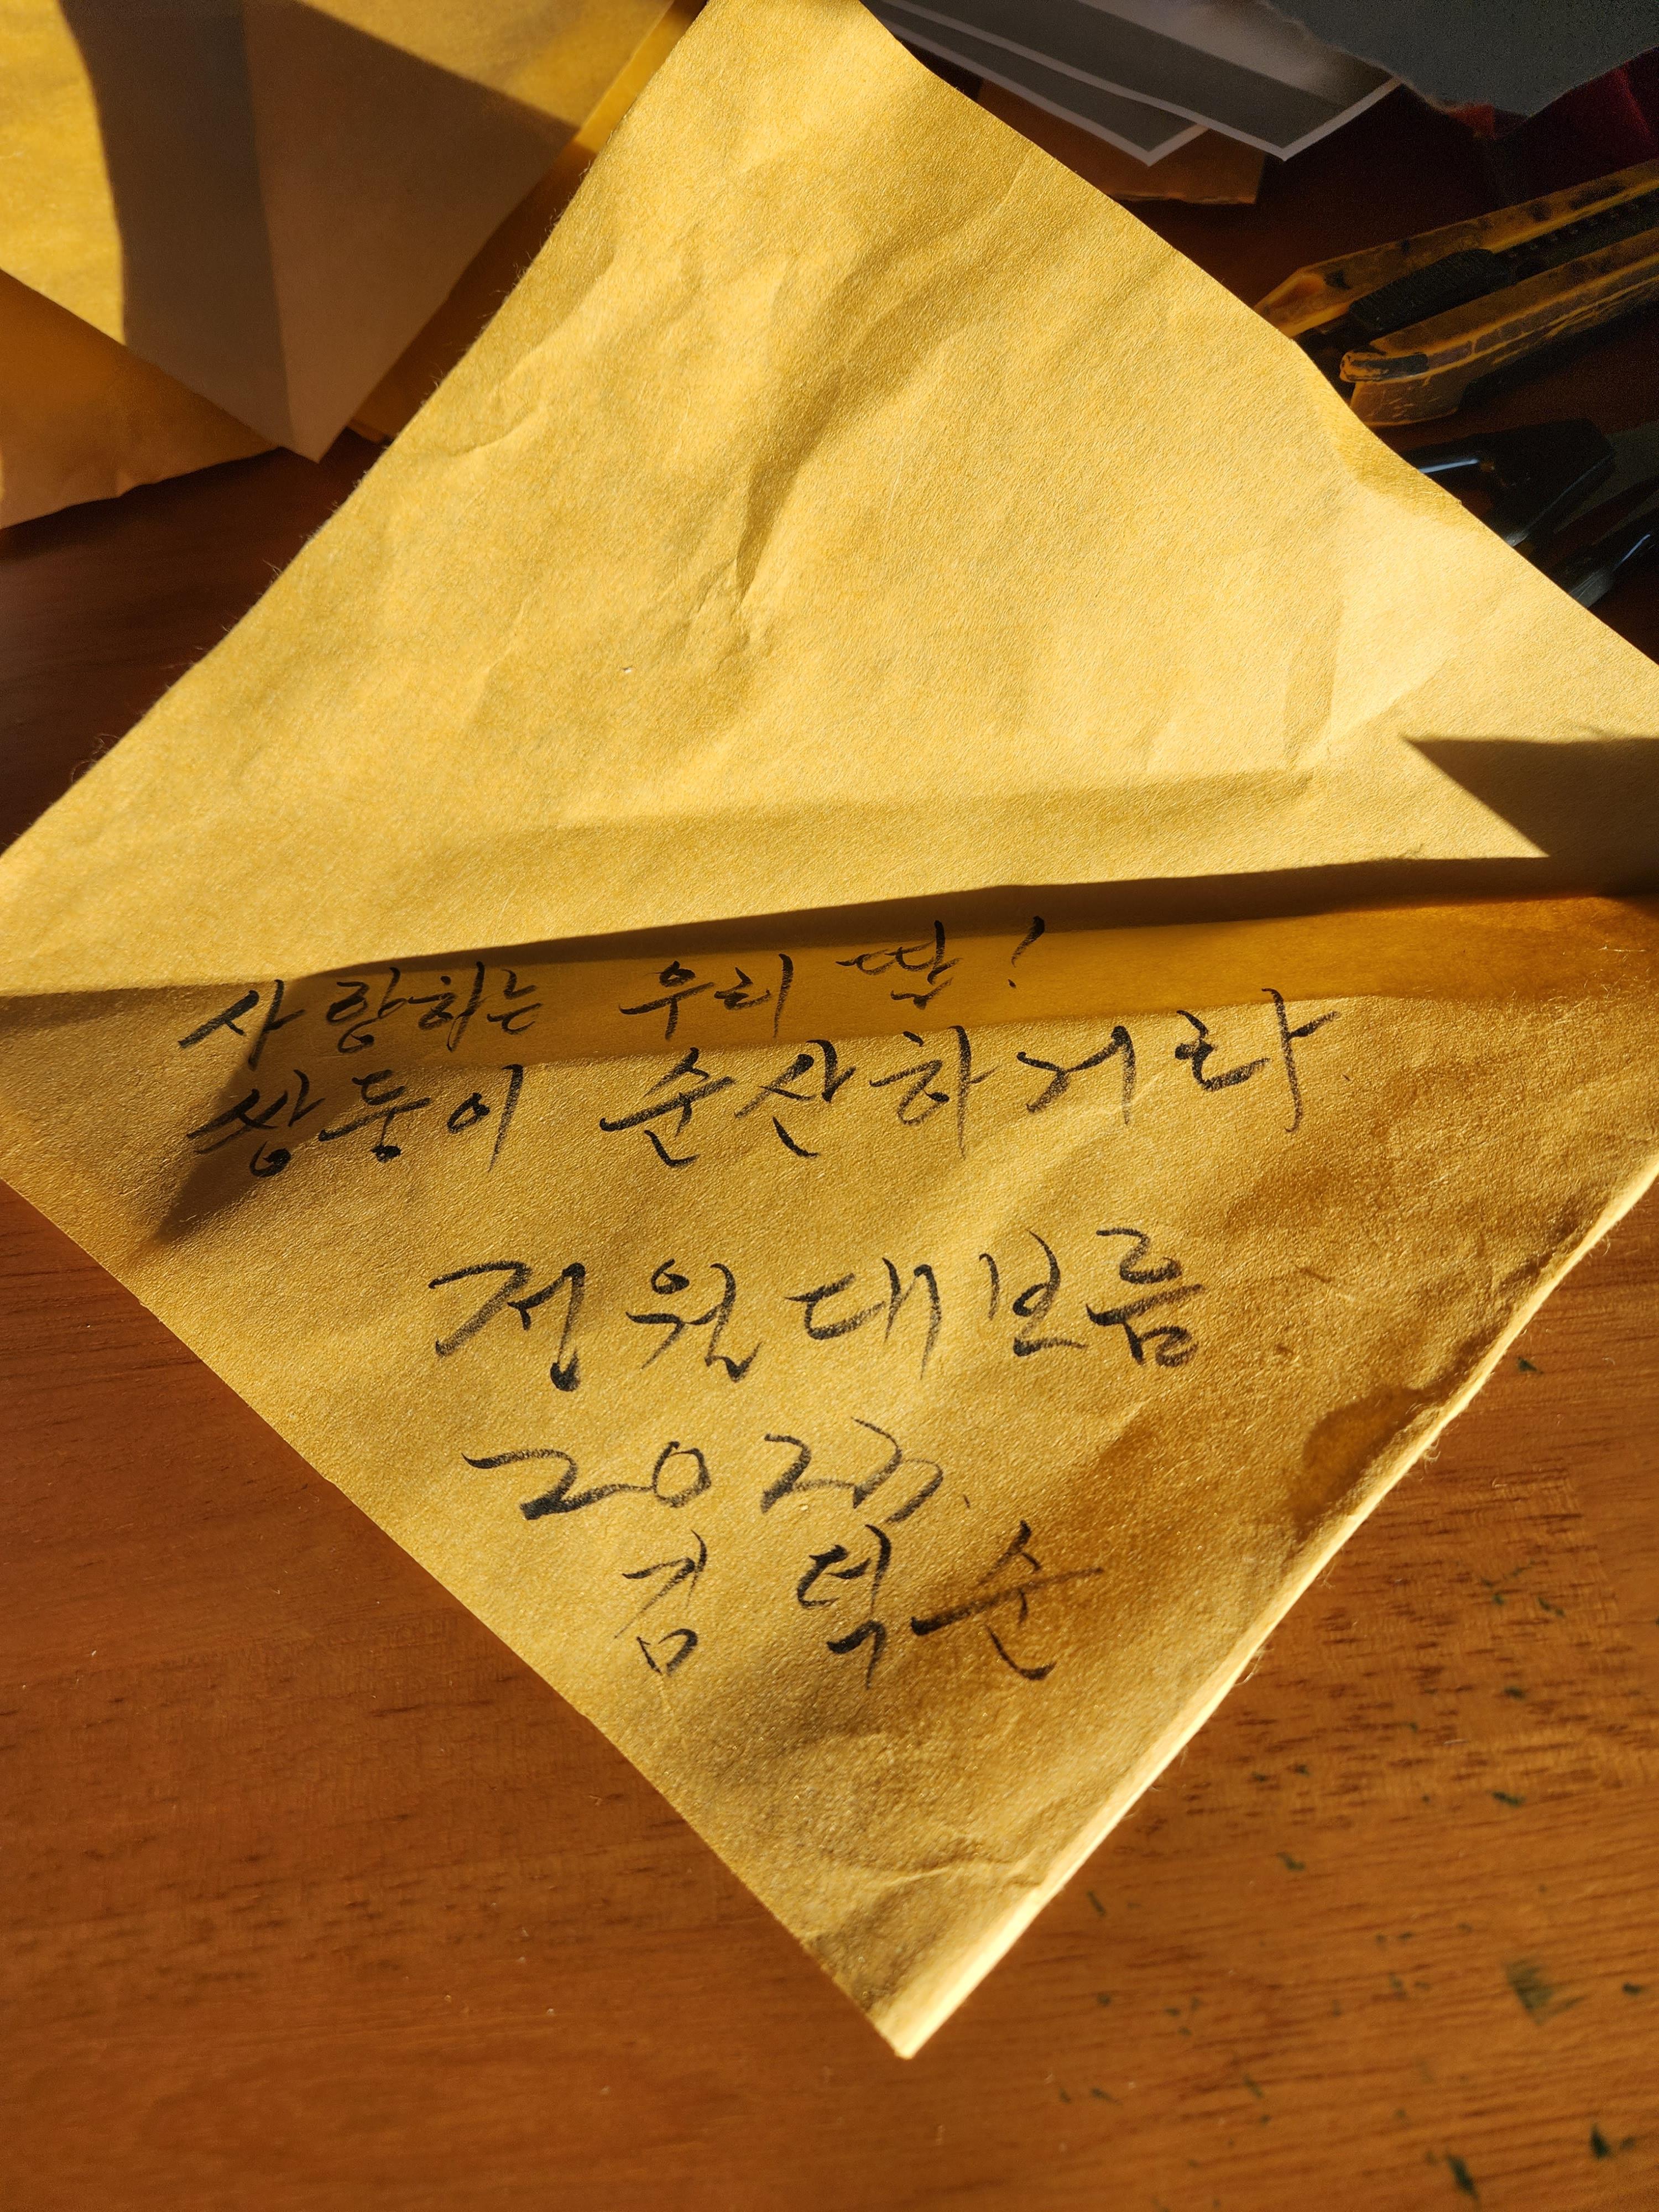 사랑하는 우리 딸!
쌍둥이 순산하거라.
정월대보름
2023.
김덕순